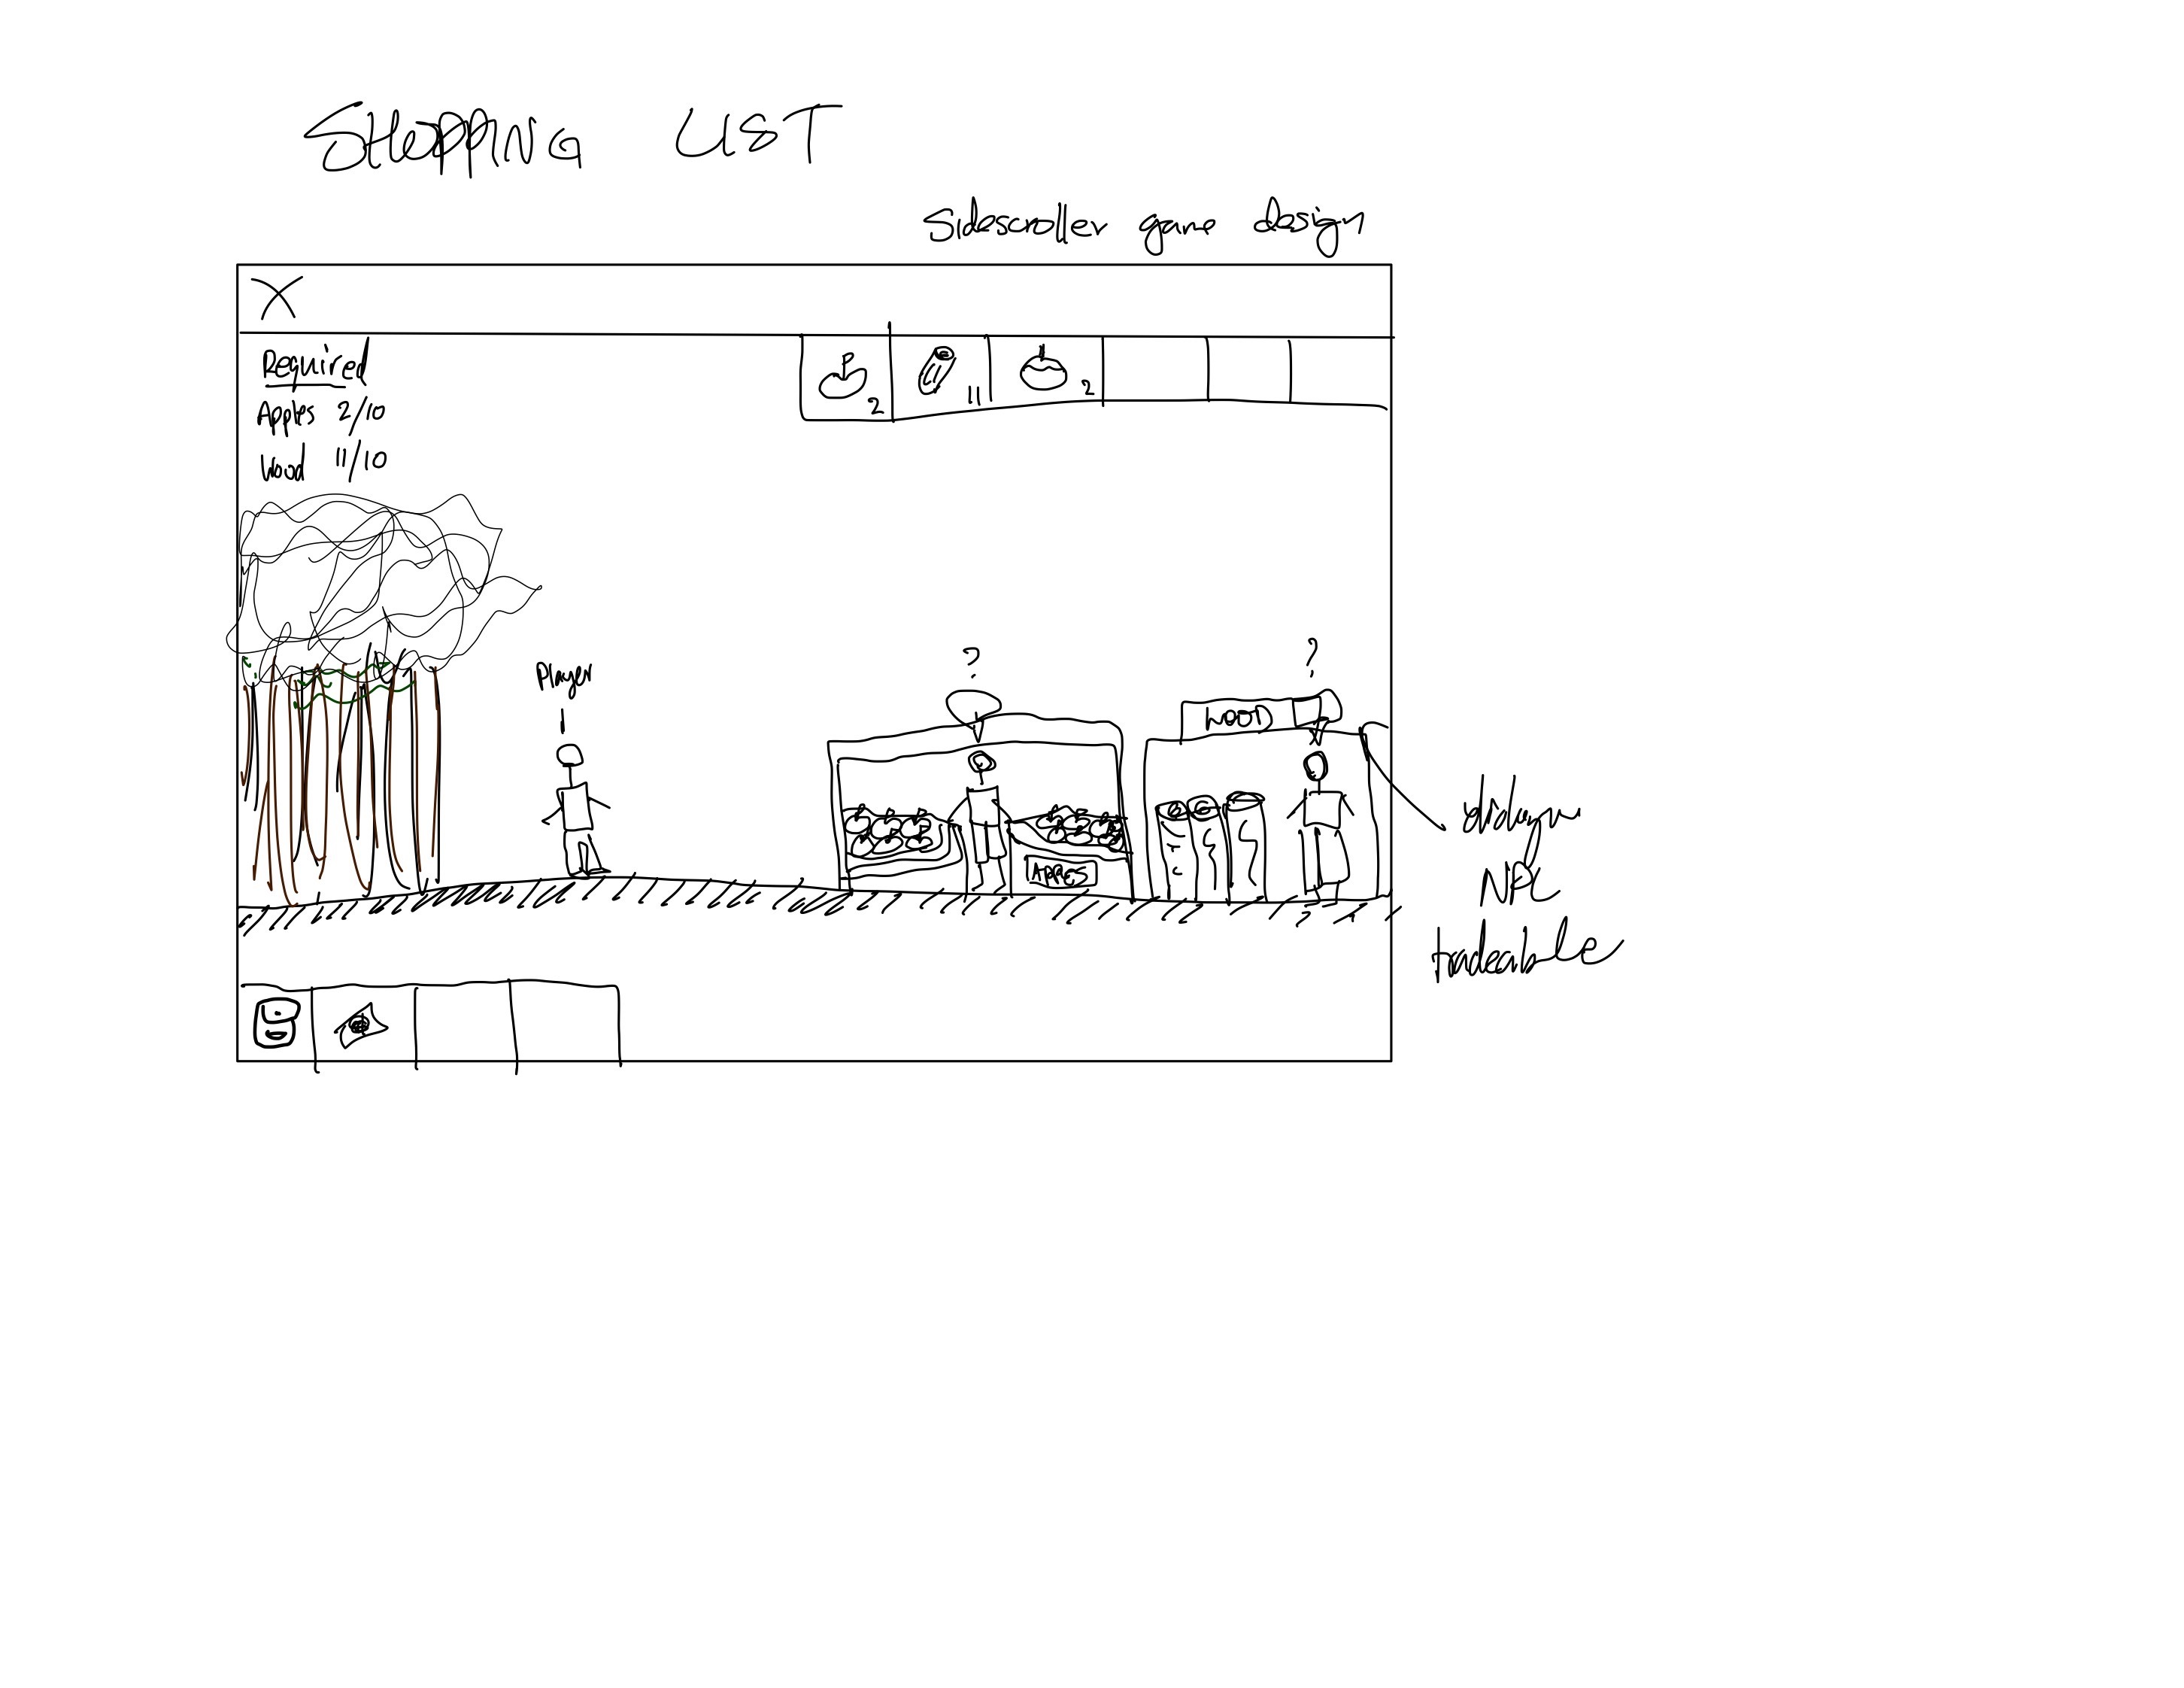 SHOPPING LIST
Sidescroller game design
Required
Apples 2/10
Wood 11/10
2
11
2
Player
?
?
WOOD
Apples
NPC